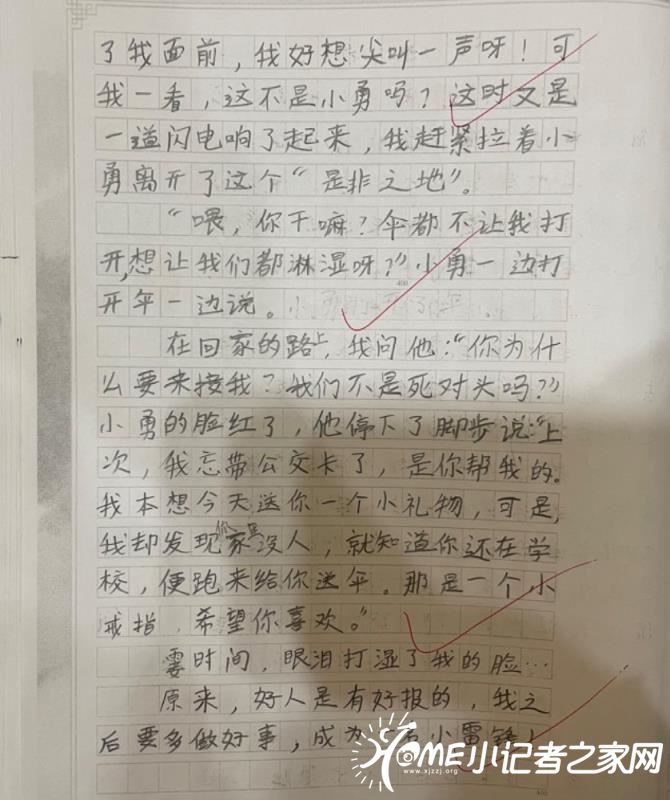 了我面前，我好想尖叫一声呀！可
我一看，这不是小勇吗？这时又是
一道闪电响了起来，我赶紧拉着小
勇离开了这个“是非之地”。
“喂，你干嘛？伞都不让我打
开，想让我们都淋湿呀？”小勇一边打
开伞一边说。
400
在回家的路上，我问他：“你为什
么要来接我？我们不是死对头吗？”
小勇的脸红了，他停下了脚步说：“上
次，我忘带公交卡了，是你帮我的。
我本想今天送你一个小礼物，可是，
我却发现你家里没人，就知道你还在学
校，便跑来给你送伞。那是一个小
戒指，希望你喜欢。”
霎时间，眼泪打湿了我的脸…
原来，好人是有好报的，我之
后要多做好事，成为
小雷锋！
HOME小记者之家网
www.xjzzj.org